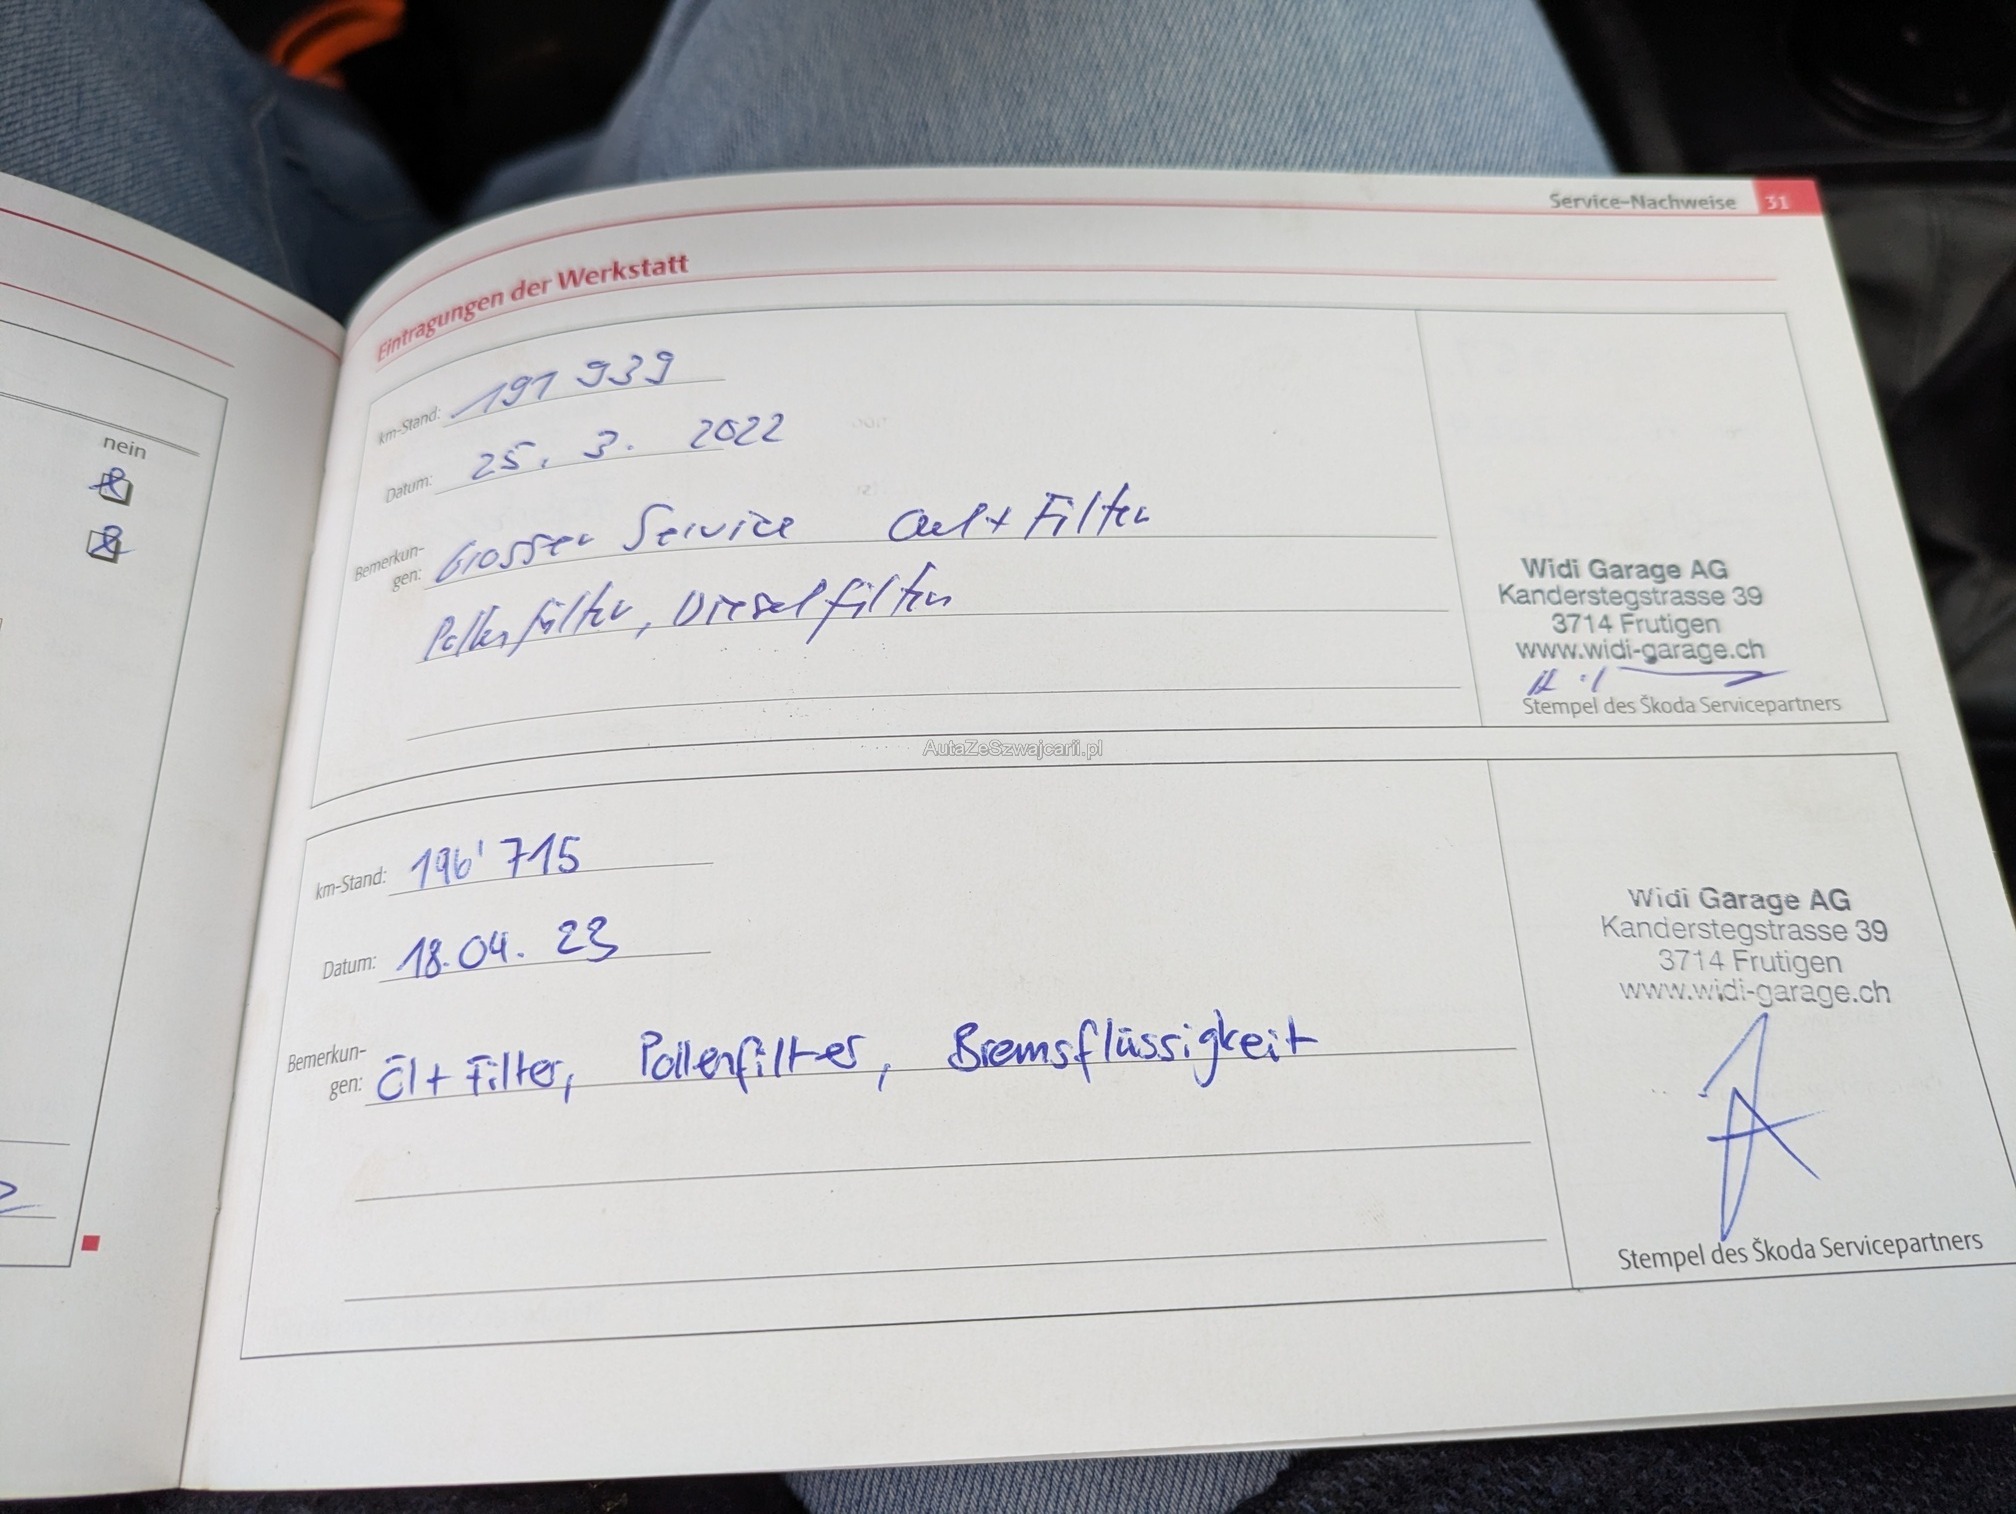 Service-Nachweise 31
Eintragungen der Werkstatt
nein
km-Stand: 191 939
Datum: 25. 3. 2022
Bemerkun-
gen: Grosser Service Oel + Filter
Pollenfilter, Dieselfilter
Widi Garage AG
Kanderstegstrasse 39
3714 Frutigen
www.widi-garage.ch
Stempel des Škoda Servicepartners
AutaZeSzwajcarii.pl
km-Stand: 196'715
Datum: 18.04.23
Bemerkun-
gen: Öl + Filter, Pollenfilter, Bremsflüssigkeit
Widi Garage AG
Kanderstegstrasse 39
3714 Frutigen
www.widi-garage.ch
Stempel des Škoda Servicepartners